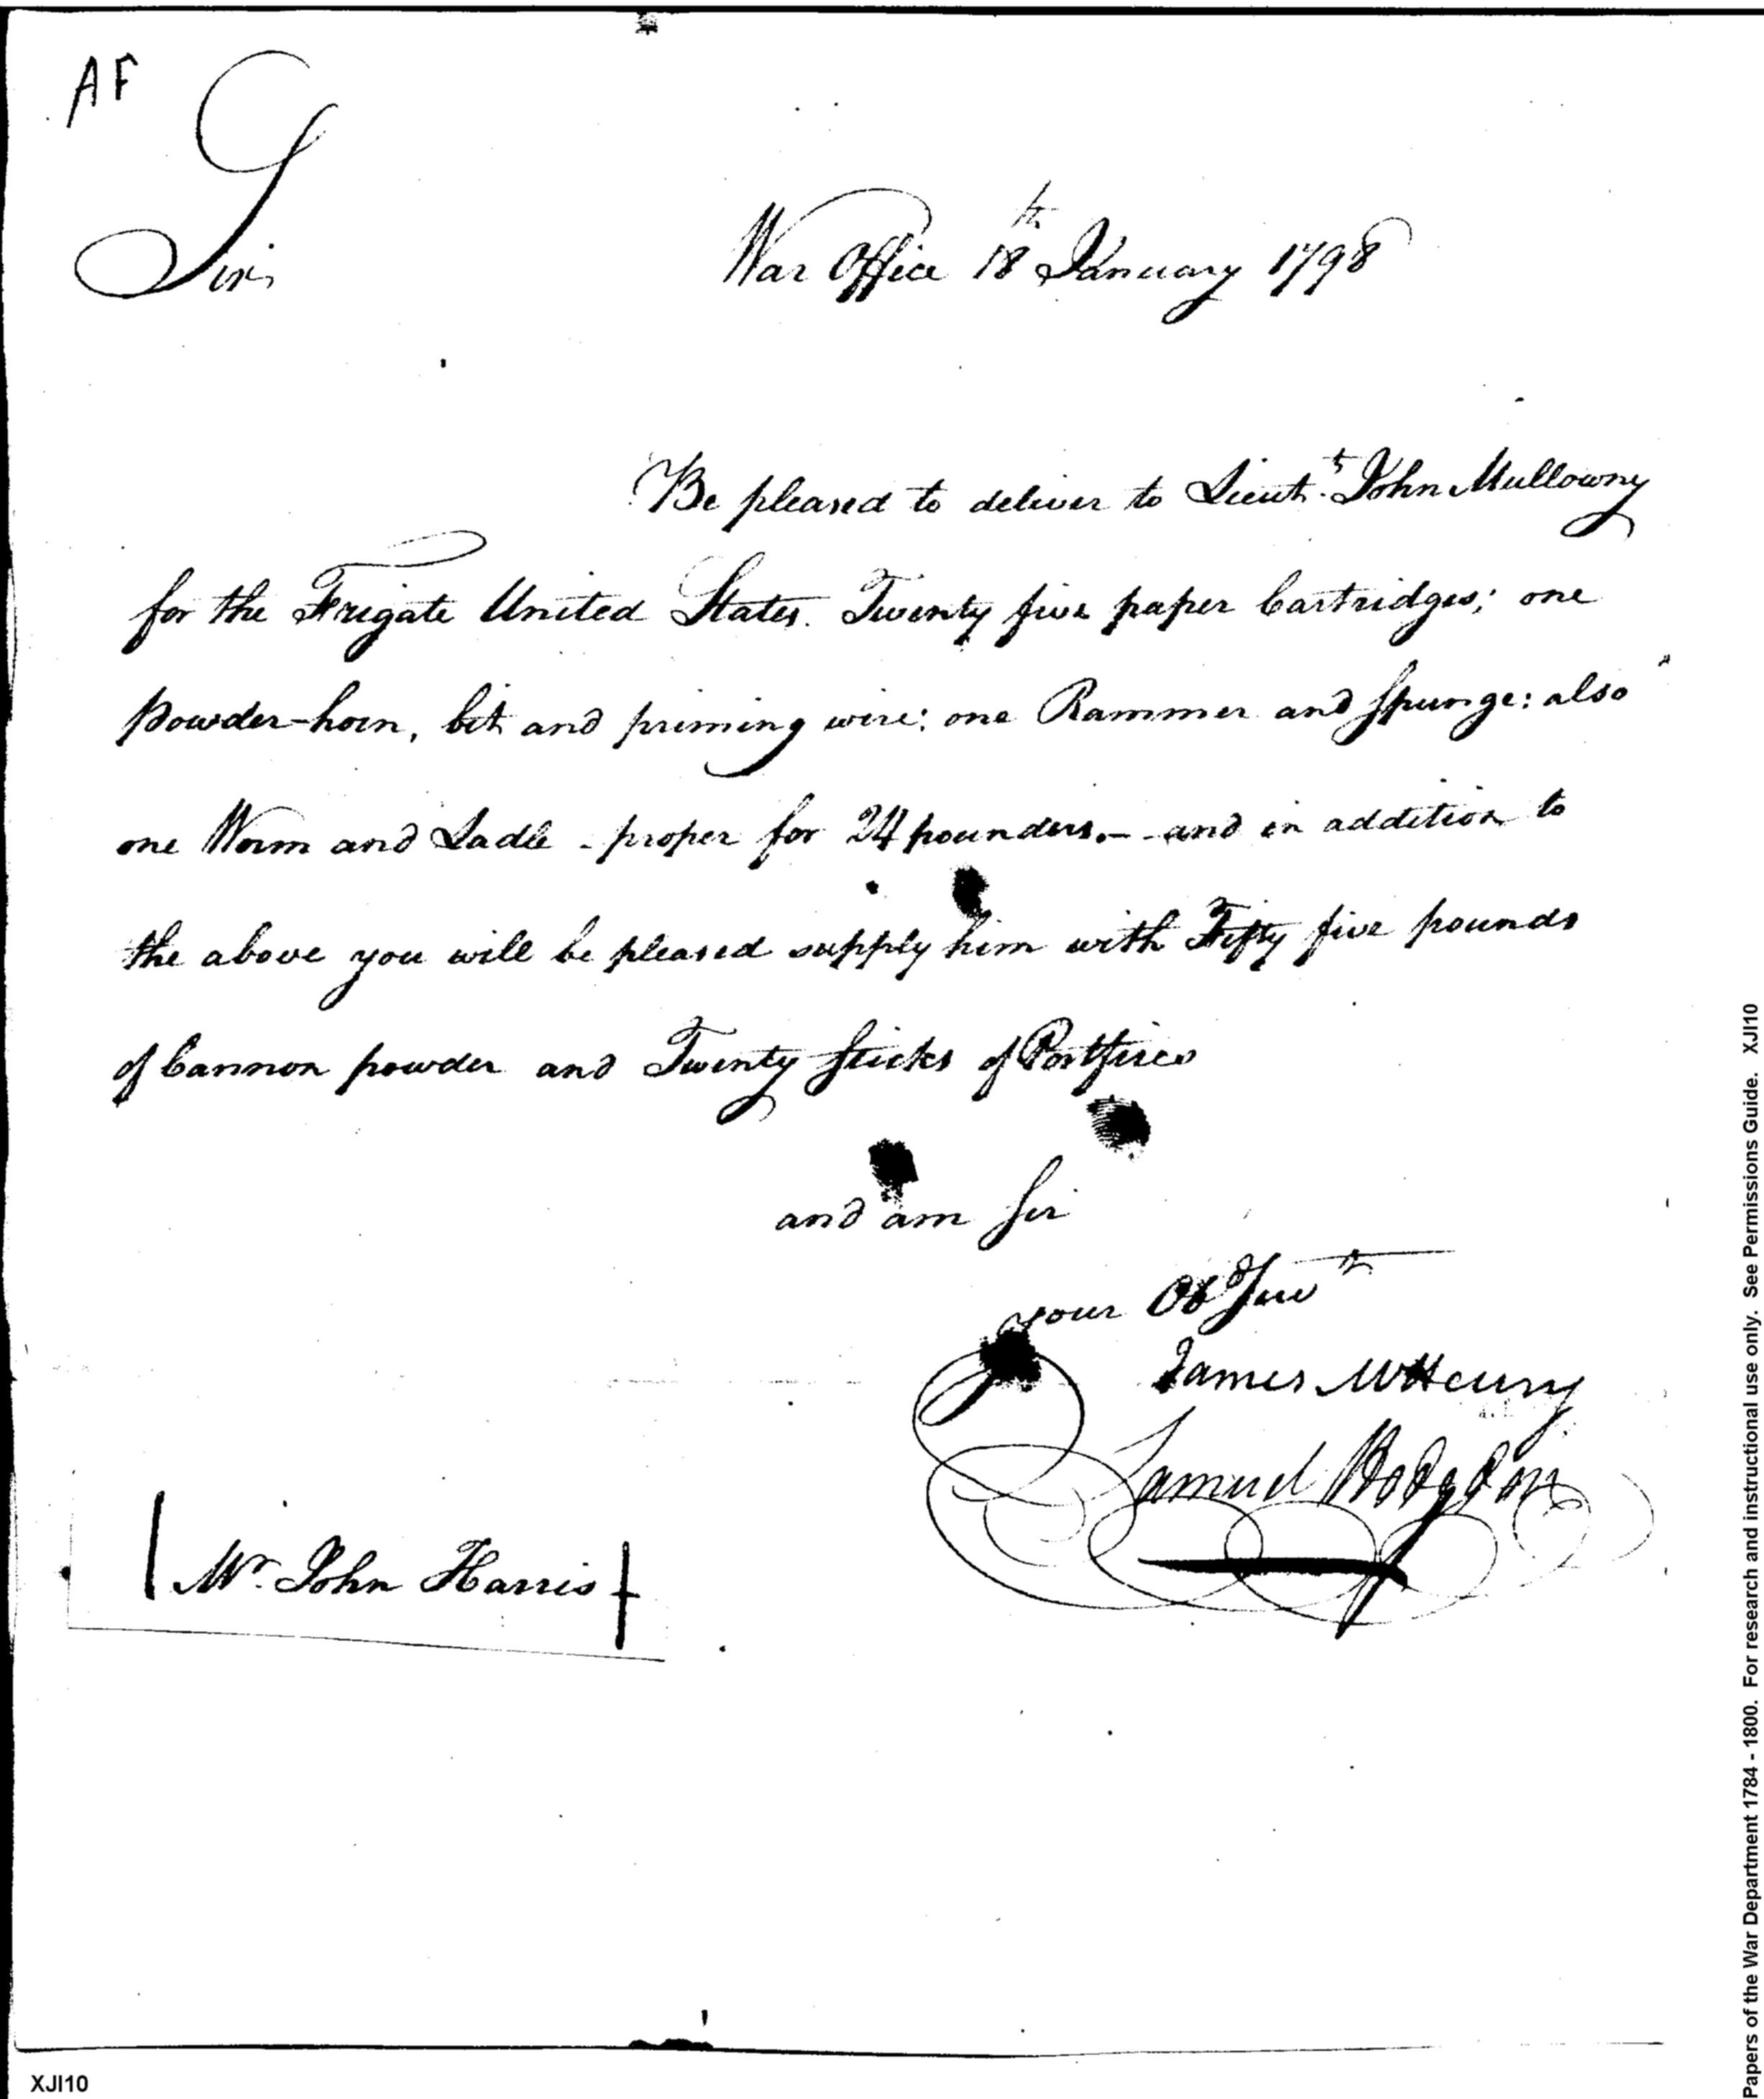 AF
Sir,
War Office 18th January 1798
Be pleased to deliver to Lieut.t John Mullowny
for the Frigate United States. Twenty five paper Cartridges; one
powder-horn, bit and priming wire; one Rammer and Spunge: also
one Worm and Ladle - proper for 24 pounders. - and in addition to
the above you will be pleased supply him with Fifty five pounds
of Cannon powder and Twenty Sticks of Portfires
and am Sir
your Obd Servt
James McHenry
Samuel Hodgdon
Mr. John Harris
XJI10
Papers of the War Department 1784 - 1800. For research and instructional use only. See Permissions Guide. XJI10